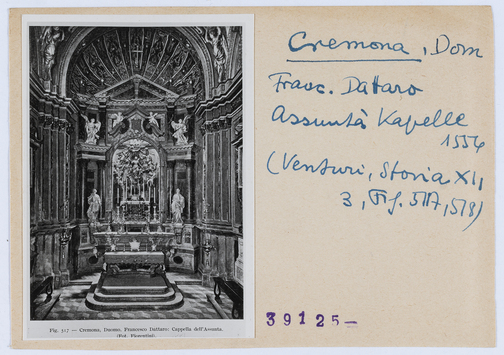 Cremona, Dom
Franc. Dattaro
Assunta Kapelle
1554
(Venturi, Storia XI,
3, Fig. 517, 518)
39125-
Fig. 517 — Cremona, Duomo. Francesco Dattaro: Cappella dell'Assunta.
(Fot. Fiorentini).